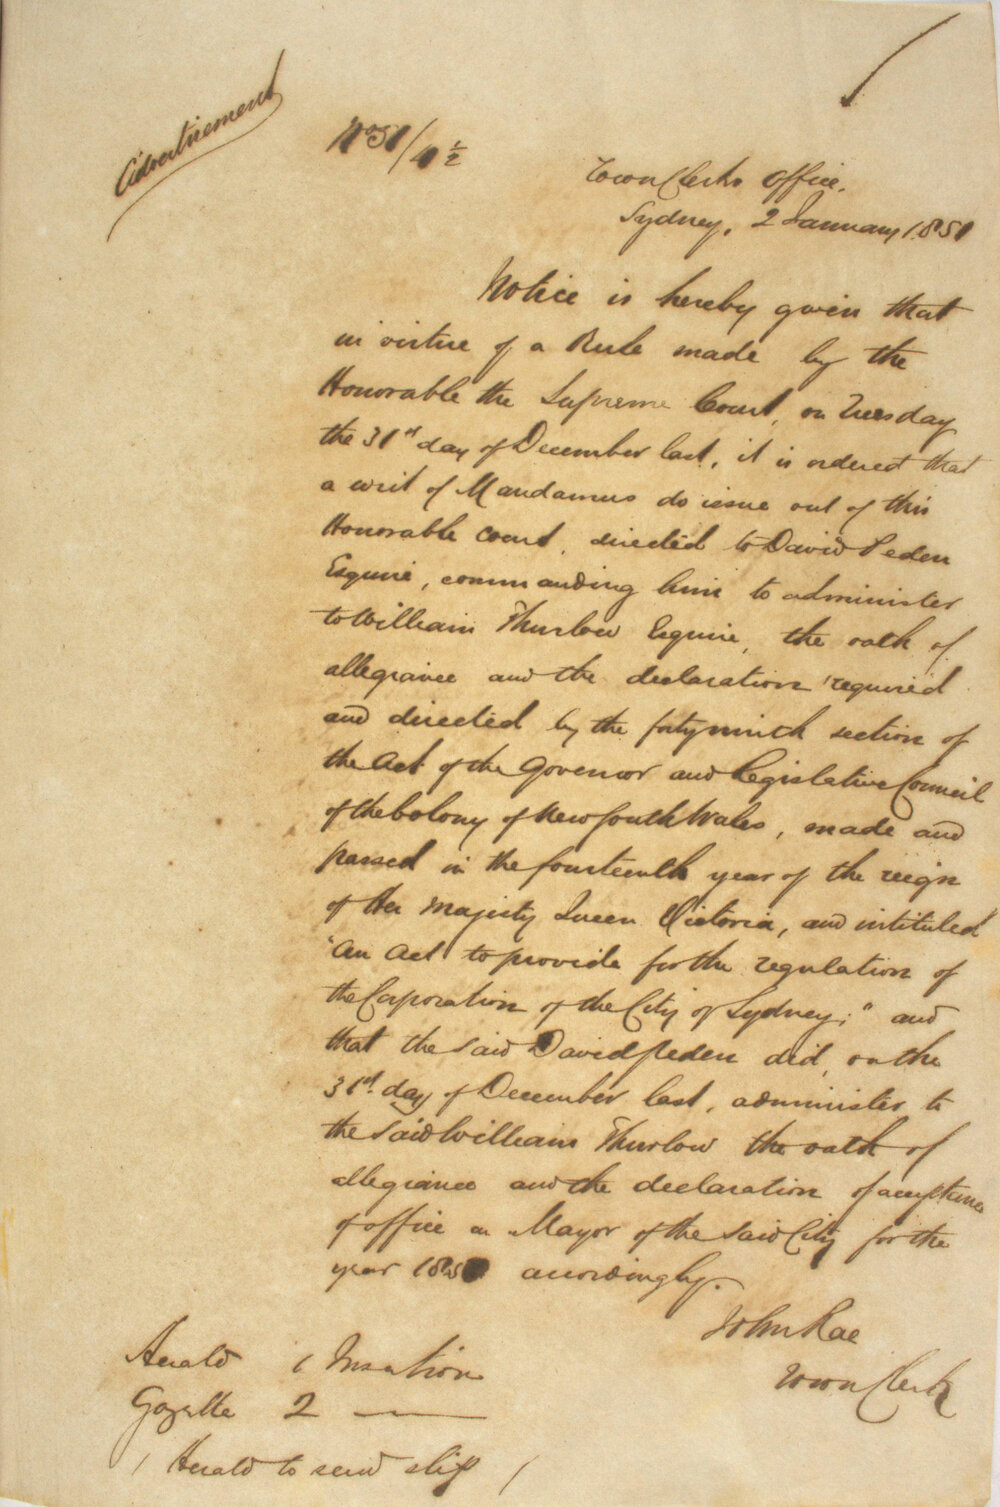 Advertisement
No 51/4½
Town Clerks Office.
Sydney, 2 January 1851
Notice is hereby given that
in virtue of a Rule made by the
Honorable the Supreme Court, on Tuesday
the 31st day of December last, it is ordered that
a writ of Mandamus do issue out of this
Honorable Court, directed to David Peden
Esquire, commanding him to administer
to William Thurlow Esquire, the oath of
allegiance and the declaration required
and directed by the fortyninth section of
the Act of the Governor and Legislative Council
of the Colony of New South Wales, made and
passed in the fourteenth year of the reign
of Her Majesty Queen Victoria, and intituled
"An Act to provide for the regulation of
the Corporation of the City of Sydney;" and
that the said David Peden did, on the
31st day of December last, administer to
the said William Thurlow the oath of
allegiance and the declaration of acceptance
of office as Mayor of the said City for the
year 1851 accordingly.
John Rae
Town Clerk
Herald 1 Insertion
Gazette 2 —
(Herald to send slip)